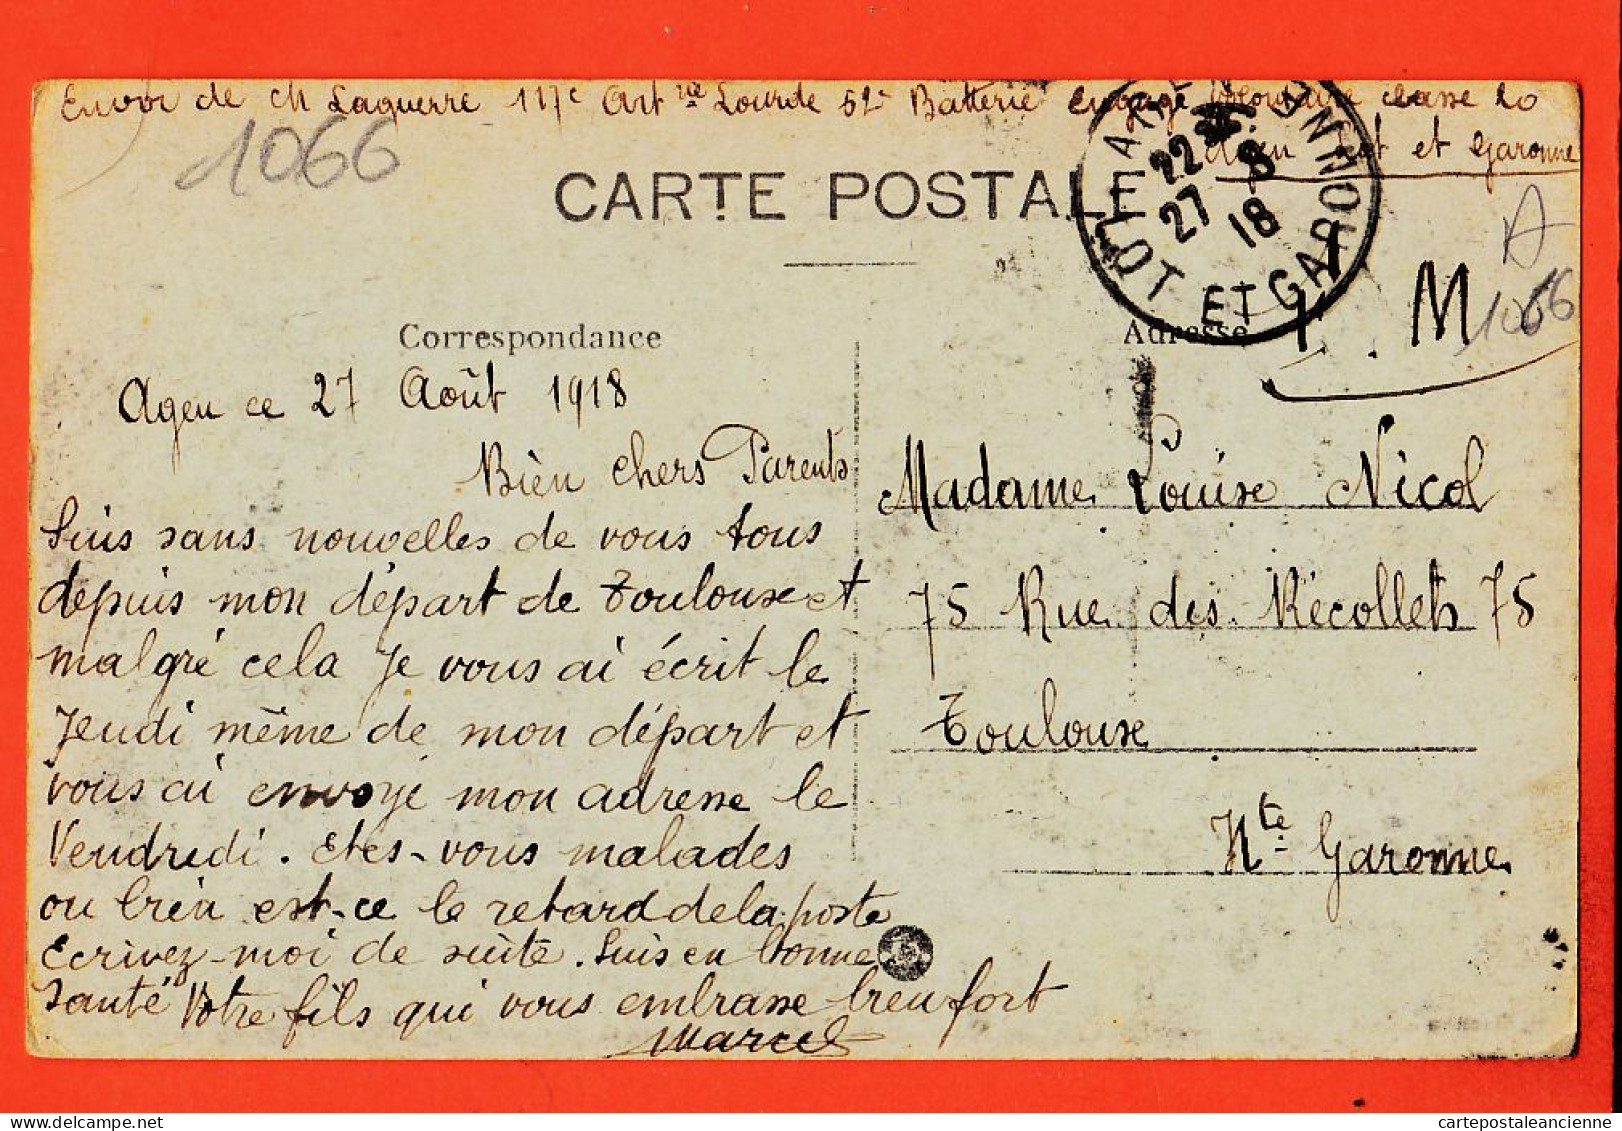 Envoi de Ch Laguerre 117e Art rie Lourde 52e Batterie engagé volontaire classe 20
Agen Lot et Garonne
1066
CARTE POSTALE
22
27 8
18
LOT ET GARONNE
A
F. M
1066
Correspondance
Adresse
Agen ce 27 Août 1918
Bien chers Parents
Suis sans nouvelles de vous tous
depuis mon départ de Toulouse et
malgré cela je vous ai écrit le
Jeudi même de mon départ et
vous ai envoyé mon adresse le
Vendredi. Etes-vous malades
ou bien est-ce le retard de la poste
Ecrivez-moi de suite. Suis en bonne
santé Votre fils qui vous embrasse bien fort
Marcel
Madame Louise Nicol
75 Rue des Récollets 75
Toulouse
Hte Garonne
cartepostaleancienne